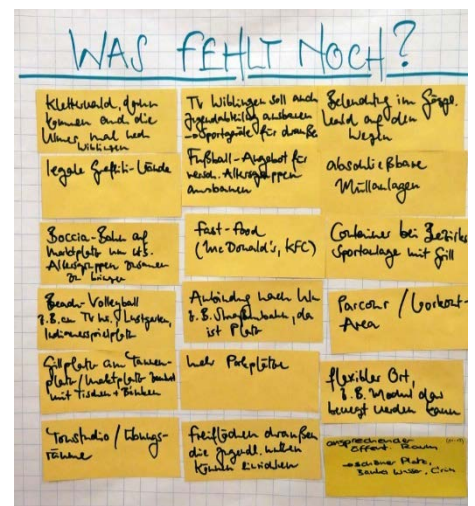 WAS FEHLT NOCH?
Kletterwald, dann
kommen auch die
Ulmer mal nach
Wiblingen
legale Graffiti-Wände
Boccia-Bahn auf
Marktplatz um
Altersgruppen zusammen
zu bringen
Beach-Volleyball
z.B. am TV
Grillplatz am Tannen-
platz/Marktplatz
mit Tischen + Bänken
Tonstudio / Übungs-
räume
TV Wiblingen soll auch
Jugendabteilung ausbauen
→ Sportgeräte für draußen
Fußball-Angebot für
versch. Altersgruppen
ausbauen
Fast-Food
(McDonald's, KFC)
Anbindung nach Ulm
z.B. Straßenbahn, da
ist Platz
mehr Parkplätze
Freiflächen draußen
die Jugendl. nutzen
können
Beleuchtung im
Wald auf den
Wegen
abschließbare
Müllanlagen
Container bei Bezirks
Sportanlage mit Grill
Parcour / Workout-
Area
flexibler Ort,
z.B. Modul das
bewegt werden kann
ansprechender
öffentl. Raum
→ schöner Platz,
Bänke, Wasser, Grün